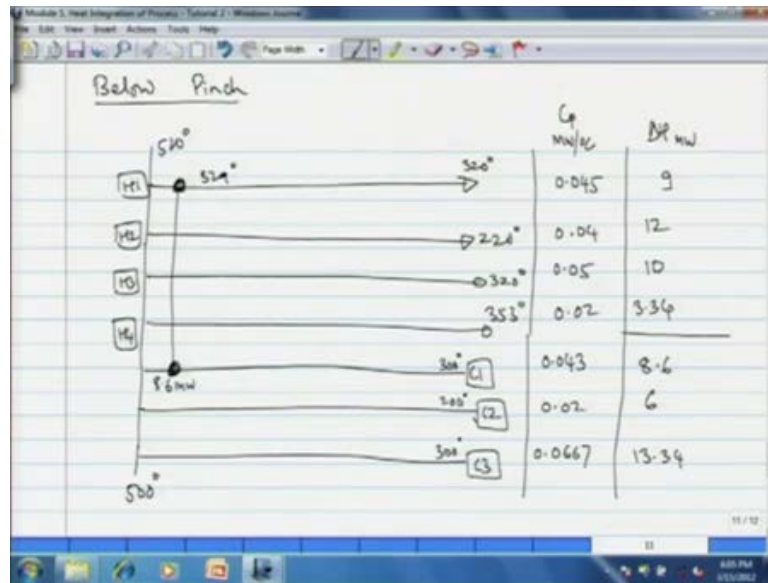 Module 5, Heat Integration of Process - Tutorial 2 - Windows Journal
File Edit View Insert Actions Tools Help
Page Width
Below Pinch
Cp
MW/°C
ΔH MW
520°
H1 329° 320° 0.045 9
H2 220° 0.04 12
H3 320° 0.05 10
H4 353° 0.02 3.34
300° C1 0.043 8.6
8.6 MW
200° C2 0.02 6
300° C3 0.0667 13.34
500°
11 / 12
11
6:05 PM
3/15/2012